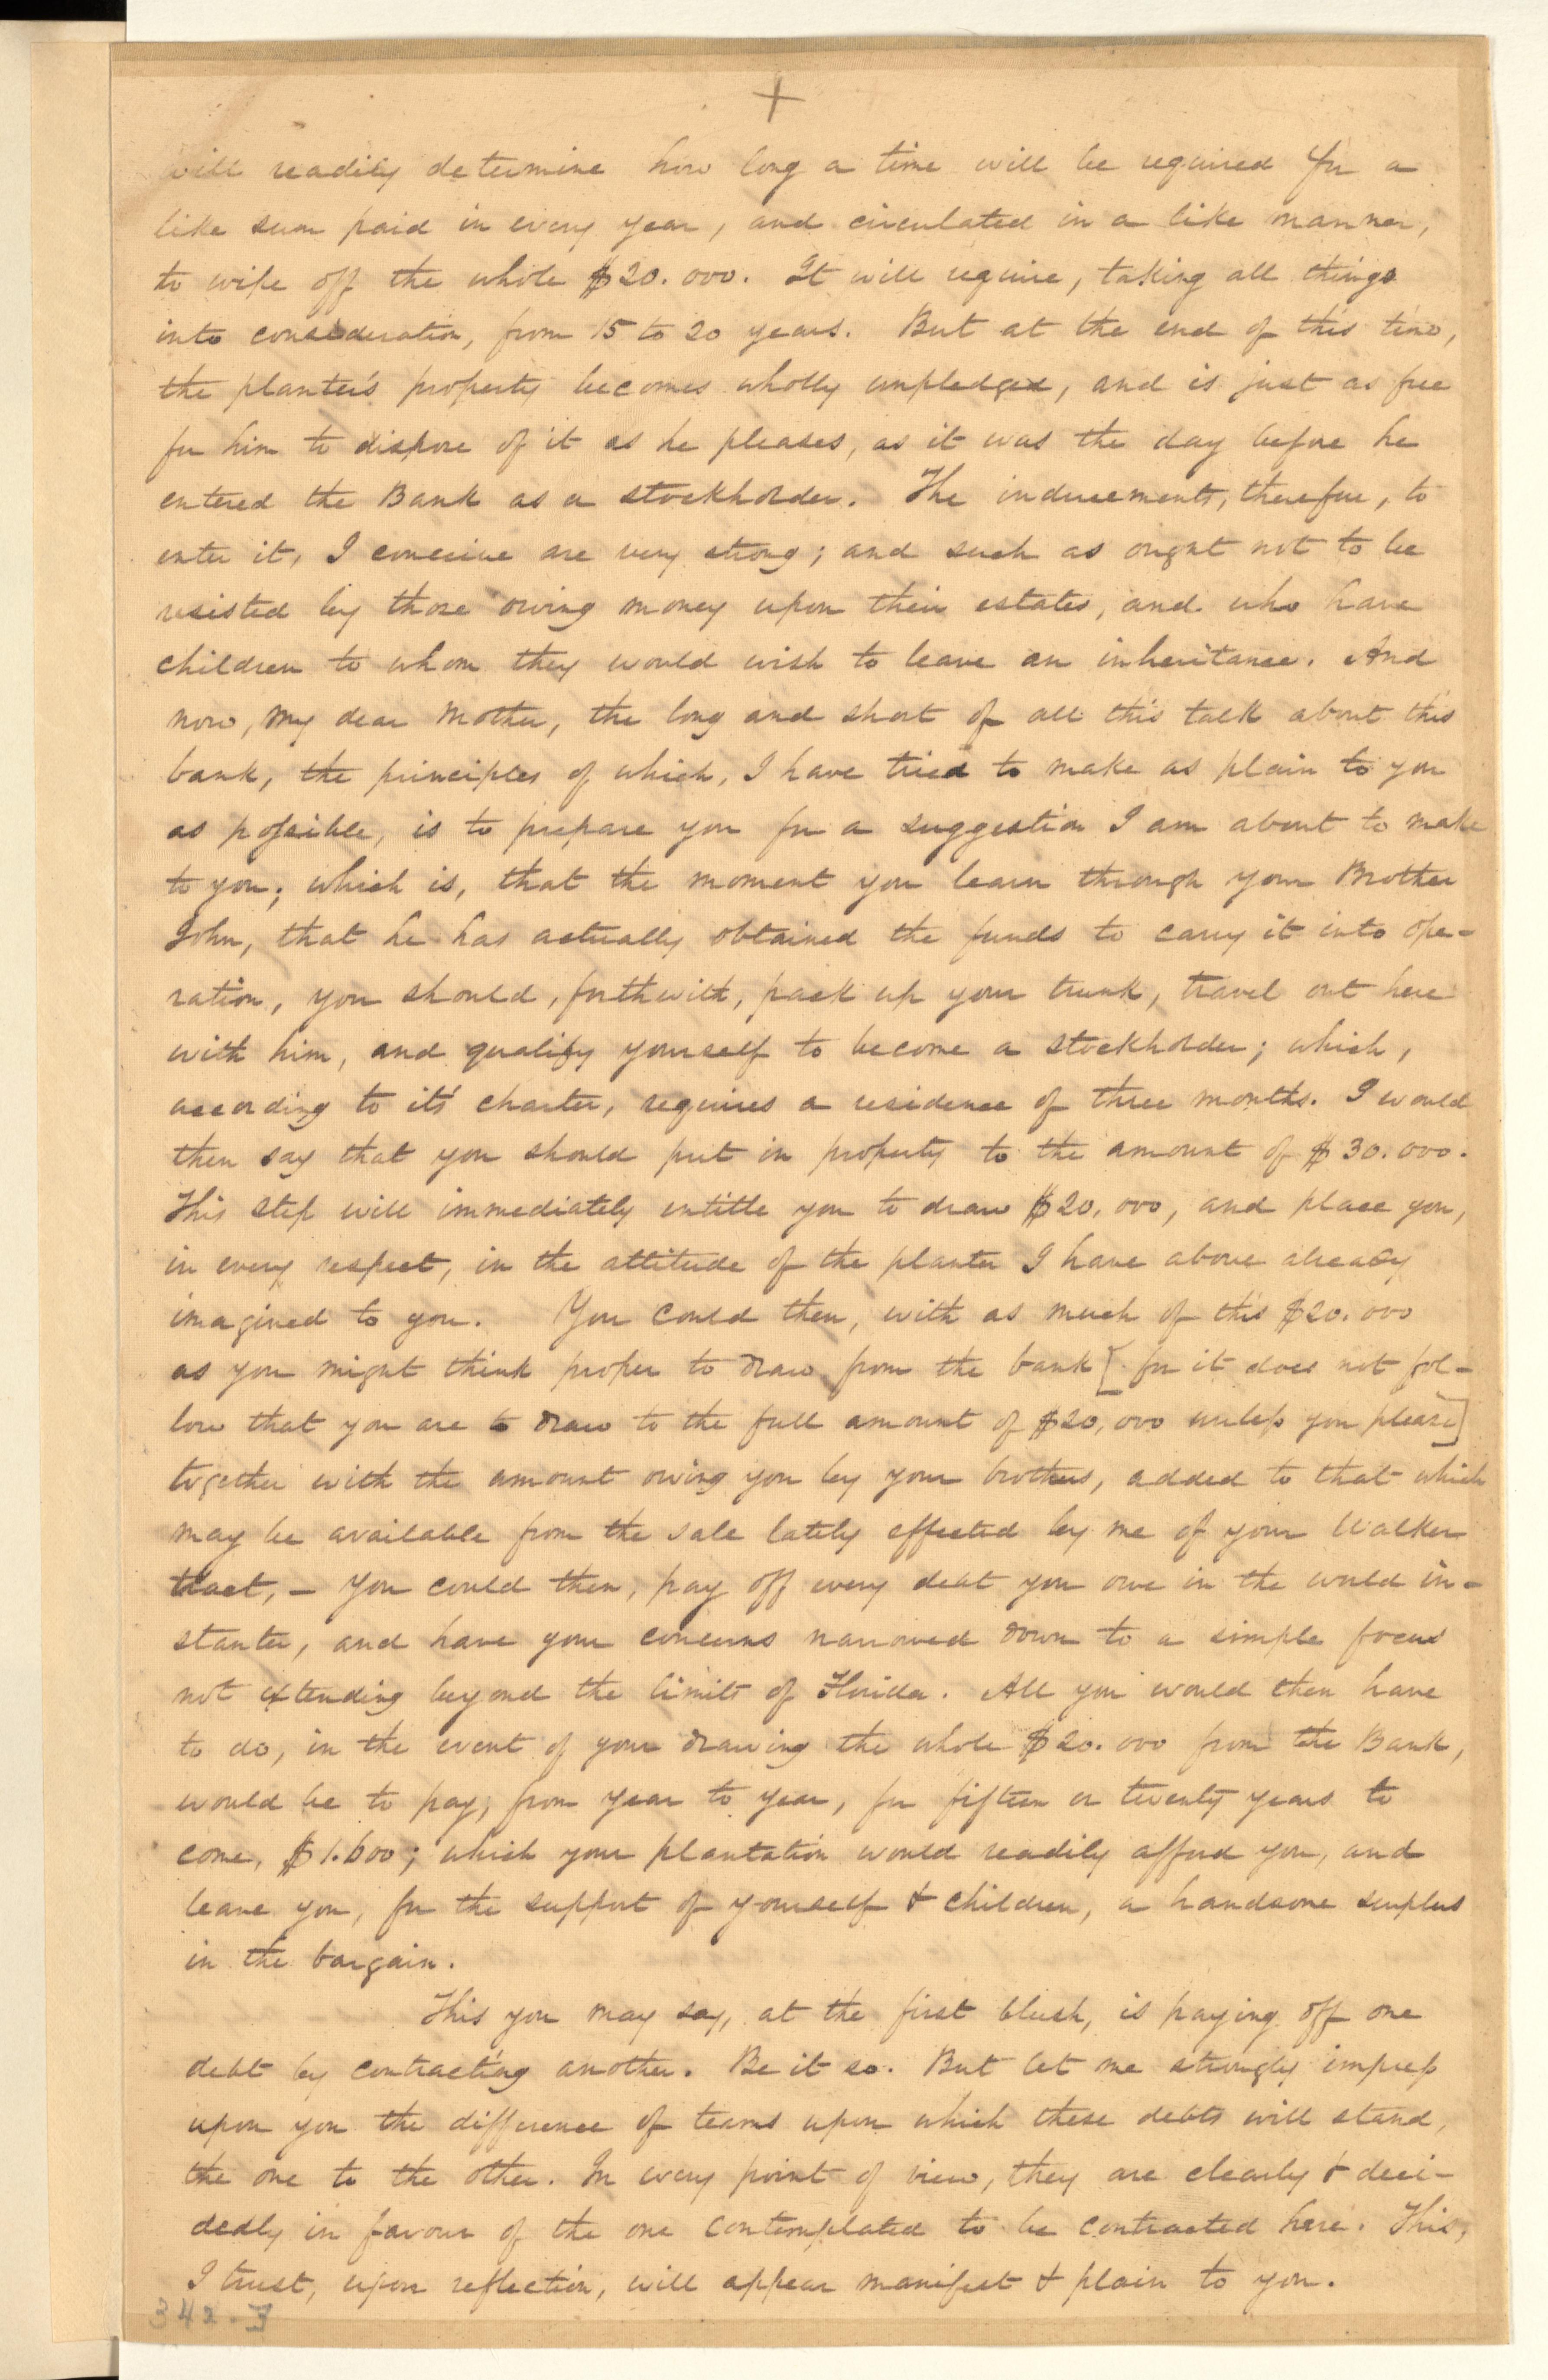 +
will readily determine how long a time will be required for a
like sum paid in every year, and circulated in a like manner,
to wipe off the whole $20.000. It will require, taking all things
into consideration, from 15 to 20 years. But at the end of this time,
the planter's property becomes wholly unpledged, and is just as free
for him to dispose of it as he pleases, as it was the day before he
entered the Bank as a stockholder. The inducements, therefore, to
enter it, I conceive are very strong; and such as ought not to be
resisted by those owing money upon their estates, and who have
children to whom they would wish to leave an inheritance. And
now, my dear Mother, the long and short of all this talk about this
bank, the principles of which, I have tried to make as plain to you
as possible, is to prepare you for a suggestion I am about to make
to you; which is, that the moment you learn through your Brother
John, that he has actually obtained the funds to carry it into ope-
ration, you should, forthwith, pack up your trunk, travel out here
with him, and qualify yourself to become a stockholder; which,
according to it's charter, requires a residence of three months. I would
then say that you should put in property to the amount of $30.000.
This step will immediately entitle you to draw $20,000, and place you,
in every respect, in the attitude of the planter I have above already
imagined to you. You could then, with as much of this $20.000
as you might think proper to draw from the bank [for it does not fol-
low that you are to draw to the full amount of $20,000 unless you please]
together with the amount owing you by your brothers, added to that which
may be available from the sale lately effected by me of your Walker
tract, - You could then, pay off every debt you owe in the world in-
stanter, and have your concerns narrowed down to a simple focus
not extending beyond the limits of Florida. All you would then have
to do, in the event of your drawing the whole $20.000 from the Bank,
would be to pay, from year to year, for fifteen or twenty years to
come, $1.600; which your plantation would readily afford you, and
leave you, for the support of yourself & children, a handsome surplus
in the bargain.
This you may say, at the first blush, is paying off one
debt by contracting another. Be it so. But let me strongly impress
upon you the difference of terms upon which these debts will stand,
the one to the other. In every point of view, they are clearly & deci-
dedly in favour of the one contemplated to be contracted here. This,
I trust, upon reflection, will appear manifest & plain to you.
342-3